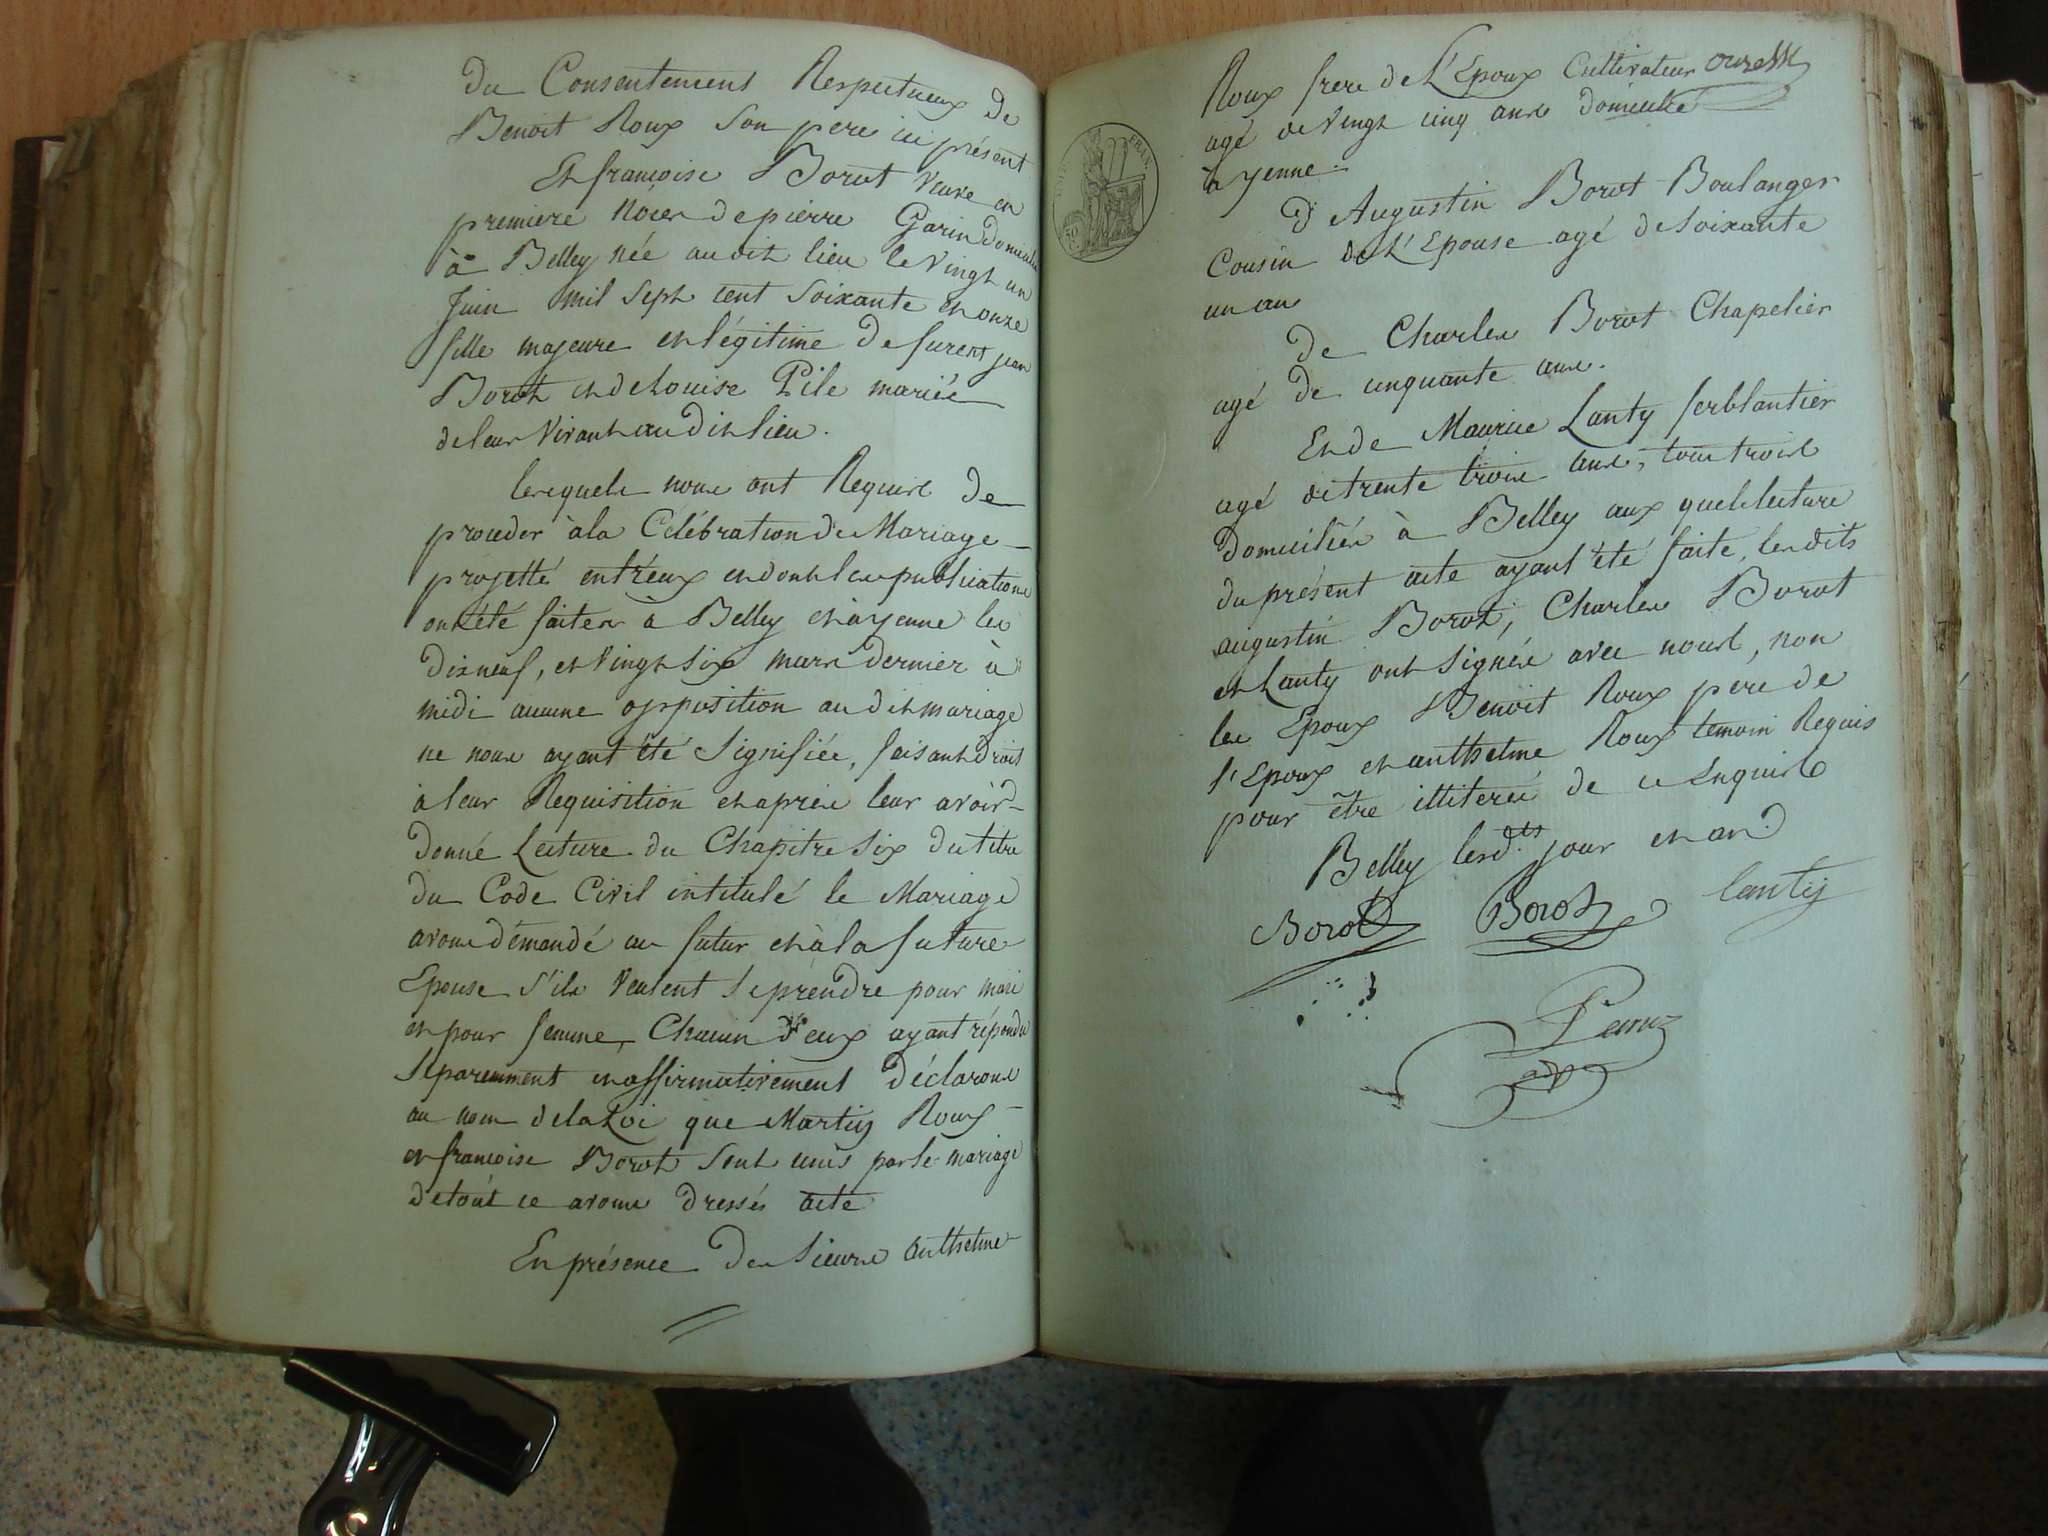 du Consentement Respectueux de
Benoit Roux Son pere ici présent
Et françoise Borot veuve en
premiere Noces de pierre Garin domiciliée
à Belley née au dit lieu le vingt un
Juin mil sept cent soixante et onze
fille majeure et légitime de furent jean
Borot et de Louise Pile mariés
de leur vivant au dit lieu.
lesquels nous ont Requis de
proceder à la Célébration du Mariage
projetté entr'eux et dont les publications
ont été faites à Belley et à yenne les
dix neuf, et vingt six mars dernier à
midi aucune opposition au dit mariage
ne nous ayant été signifiée, faisant droit
à leur Requisition et après leur avoir
donné Lecture du Chapitre six du titre
du Code Civil intitulé le Mariage
avons démandé au futur et à la future
Epouse s'ils veulent se prendre pour mari
et pour femme, Chacun d'eux ayant répondu
séparemment et affirmativement déclarons
au nom de la Loi que Martin Roux
et françoise Borot sont unis par le mariage
de tout ce avons dressés acte
En présence des sieurs anthelme
Roux frere de L'Epoux Cultivateur
agé de vingt cinq ans domicilié
à yenne
d'Augustin Borot Boulanger
Cousin de L'Epouse agé de soixante
un an
de Charles Borot Chapelier
agé de cinquante ans.
Et de Maurice Lanty ferblantier
agé de trente trois ans, tous trois
domiciliés à Belley aux quels lecture
du présent acte ayant été faite, les dits
augustin Borot, Charles Borot
et Lanty ont signés avec nous, non
les Epoux Benoit Roux pere de
l'Epoux et anthelme Roux temoin Requis
pour être illiterés de ce Enquis
Belley les d.ts jour et an.
Borot Borot Lanty
adj